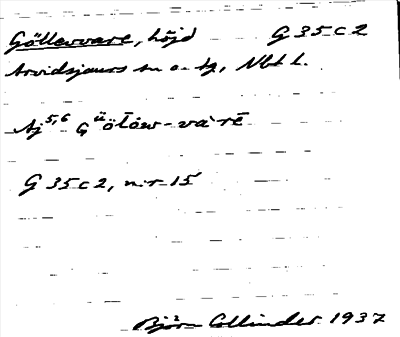 Göllesvare, höjd G 35 c 2
Arvidsjaurs sn o. tg, Nbt l.
Aj 5,6
G 35 c 2, nr 15
Björn Collinder 1937